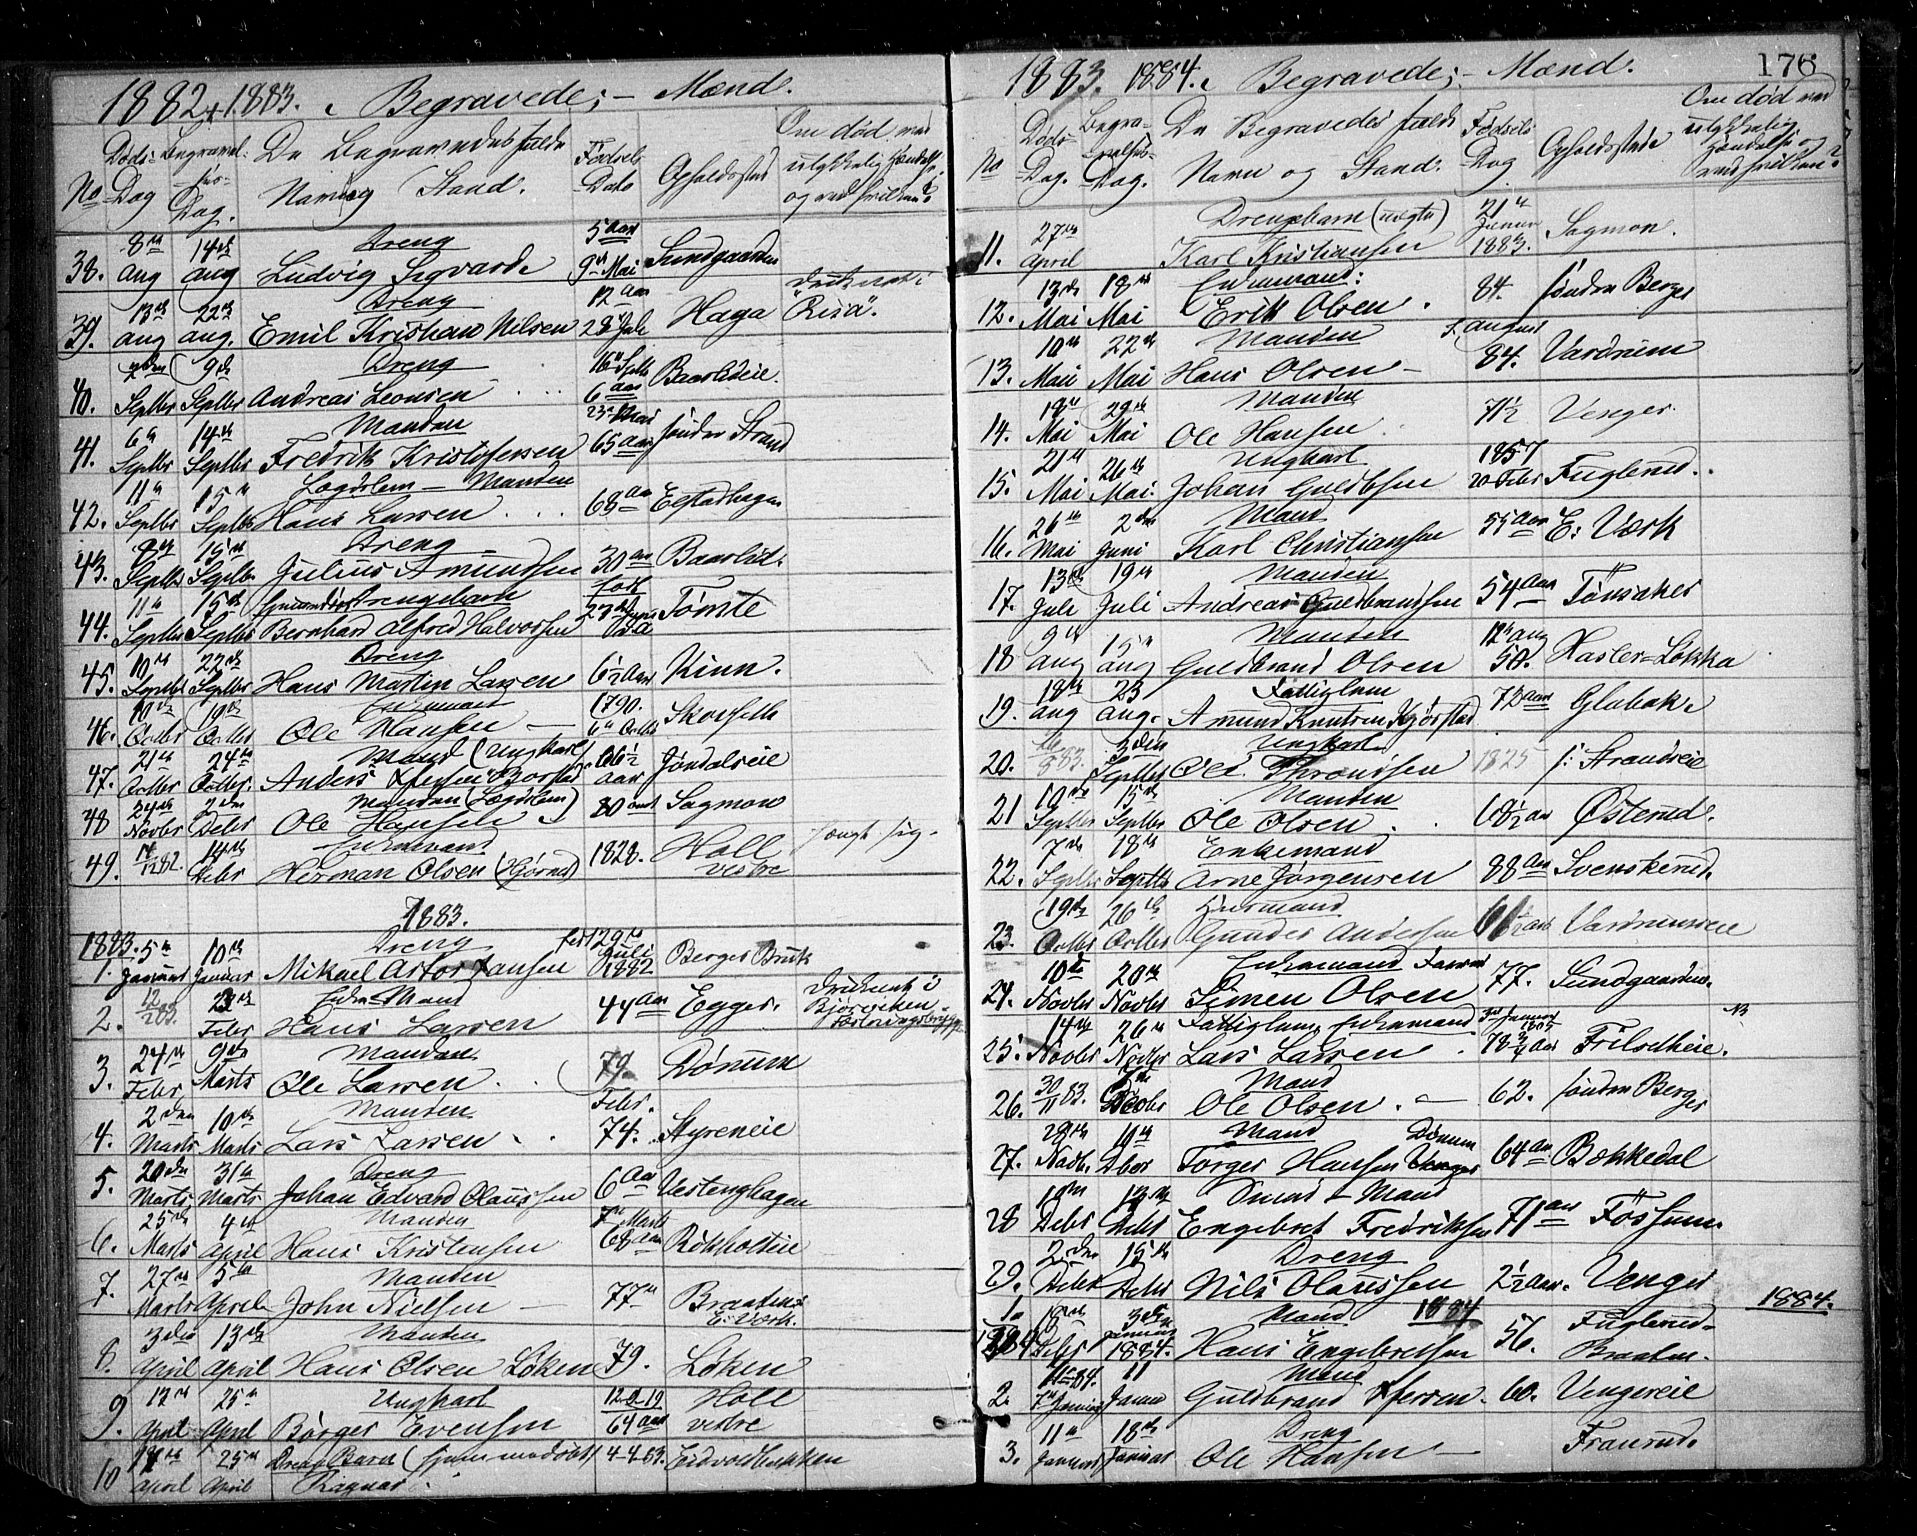 1882 & 1883. Begravede; – Mænd.
No Døds-Dag Begravelses-Dag. De Begravedes fulde Navn og Stand. Fødsels Dato Opholdssted Om død ved ulykkelig Hændelse og ved hvilken?
38. 8de Aug 14de Aug Dreng Ludvig Sigvardt 5 Aar 9de Mai Sundgaarden
39. 13de Aug 22de Aug. Dreng Emil Kristian Nilsen 12 Aar 28de Juli Haga druknet i "Risa".
40. 7den Septbr 9de Septbr Dreng Andreas Leonsen 16de Septb 6 Aar Baarlideie.
41. 6te Septbr 14de Septbr Manden Fredrik Kristofersen 23de Mai 65 Aar søndre Strand
42. 11te Septbr 15de Septbr Lægdslem – Manden Hans Larsen 68 Aar Egstadhagen
43. 8de Septbr 15de Septbr Dreng Julius Amundsen 30 Aar Baarlid.
44. 11te Septbr 15de Septbr Drengebarn Bernhard Alfred Halvorsen født 22de Tømte
45. 10de Septbr 22de Septbr Dreng Hans Martin Larsen 6½ Aar Kinn.
46. 10de Octbr 19de Octbr Enkemand Ole Hansen – 1790. 6te Octb Skorseth
47. 21de Octbr 24de Octbr. Mand (Ungkarl) Anders 66½ Aar Jøndalseie
48 24de Novbr 2den Debr Manden (Lægdslem) Ole Hansen 80 Aar Sagmoen
49. 14/12 82. 14de Debr Enkemand Herman Olsen (Hjørnet) 1828. Holl vestre hængt sig.
1883.
1883. 1. 5te Januar 10de Januar Dreng Mikael Astor Jansen født 29de Juli 1882 Berger Bruk
2. 12/2 83. 23de Febr Enke-Mand Hans Larsen 44 Aar Egger. druknet i Bjørviken – Fæstningsbrygge
3. 24de Febr 9de Marts Manden Ole Larsen 79. Dønum
4. 2den Marts 10de Marts Manden Lars Larsen Febr. 74. Styreneie
5. 20de Marts 31te Marts Dreng Johan Edvard Olaussen 6 Aar Vestenghagen
6. 25de Marts 4de April Manden Hans Kristensen 7de Marts 68 Aar Rokholteie
7. 27de Marts 5te April Manden John Nielsen – 77 Braaten E: Værk.
8. 3die April 13de April Manden Hans Olsen Løken 79. Løken
9. 17de April 25de April Ungkarl Børger Evensen 12-2-19 64 Aar Holl vestre
10 April 25de April Drengebarn (hjemmedøbt) Ragnar 4-4-83. Eidsvoldbakken
1883. 1884. Begravede; – Mænd. 176
No Døds-Dag. Begravelses-Dag. De Begravedes fulde Navn og Stand. Fødsels Dag Opholdssted Om død ved ulykkelig Hændelse og ved hvilken?
11. 27de April Drengebarn (uægte) Karl Kristiansen 21de Januar 1883. Sagmoen.
12. 13de Mai 18de Mai Enkemand: Erik Olsen. 84. søndre Berger
13. 10de Mai 22de Mai Manden Hans Olsen – August 84. Vardrum
14. 18de Mai 29de Mai Manden Ole Hansen 71½ Venger.
15. 21de Mai 26de Mai. Ungkarl Johan Guldbsen 1857 20 Febr Fuglerud.
16. 26de Mai 2den Juni Mand Karl Christiansen 55 Aar E: Værk
17. 13de Juli 19de Juli Manden Andreas Guldbrandsen 54 Aar Tønsaker
18 9de Aug 15de Aug Manden Guldbrand Olsen 12te Aug 50. Hasler-Løkka
19. 18de Aug 23 Aug. Fattiglem Amund Knutsen Kjørstad 72 Aar Globak.
20. 8 83. 3die Septbr Ungkarl Ole Thronsen 1825 s: Strandeie
21 10de Septbr 15de Septbr Manden Ole Olsen. 68½ Aar Østerud.
22. 7de Septbr 18de Septbr Enkemand Arne Jørgensen 88 Aar Svenskerud.
23. 19de Octbr 26de Octbr Enkemand Gunder Andersen 66½ Aar Vardrumseie
24. 10de Novbr 20de Novbr Enkemand Simen Olsen 77. Sundgaarden.
25. 14de Novbr 26de Novbr Fattiglem, Enkemand Lars Larsen. 3de Januar 1805 78¾ Aar Frilsetheie. NB
26. 30/11 83. Decbr Mand Ole Olsen. – 62. søndre Berger
27. 28de Novb. 11te Dbr Mand Torger Hansen Venger Dønum 64 Aar Bekkedal
28 10de Debr 13de Debr Smed – Mand Engebret Fredriksen 71 Aar Fossum.
29. 2den Debr 15de Debr Dreng Nils Olaussen 2½ Aar. Venger
1884.
1. 18de Debr 3die Januar 1884. Mand 1884 Hans Engebretsen 56. Fuglerud-Braaten.
2. 7de Januar 11 Januar Mand Guldbrand Ifversen. 60. Vengereie
3. 11te Januar 18de Januar Dreng Ole Hansen – Franrud.